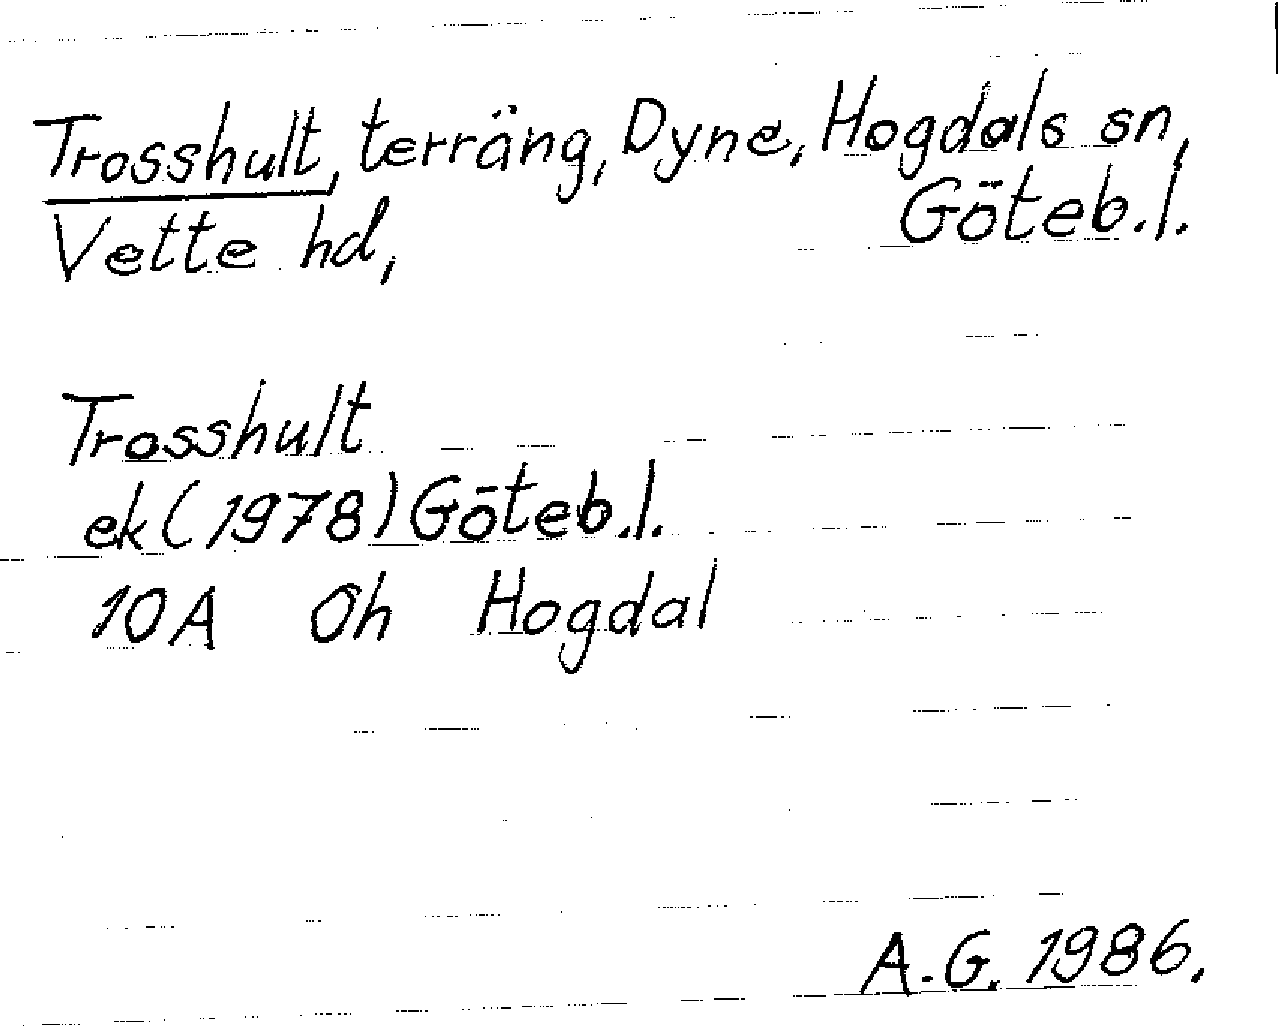 Trosshult, terräng, Dyne, Hogdals sn,
Vette hd, Göteb.l.
Trosshult
ek (1978) Göteb.l.
10A 0h Hogdal
A.G. 1986.